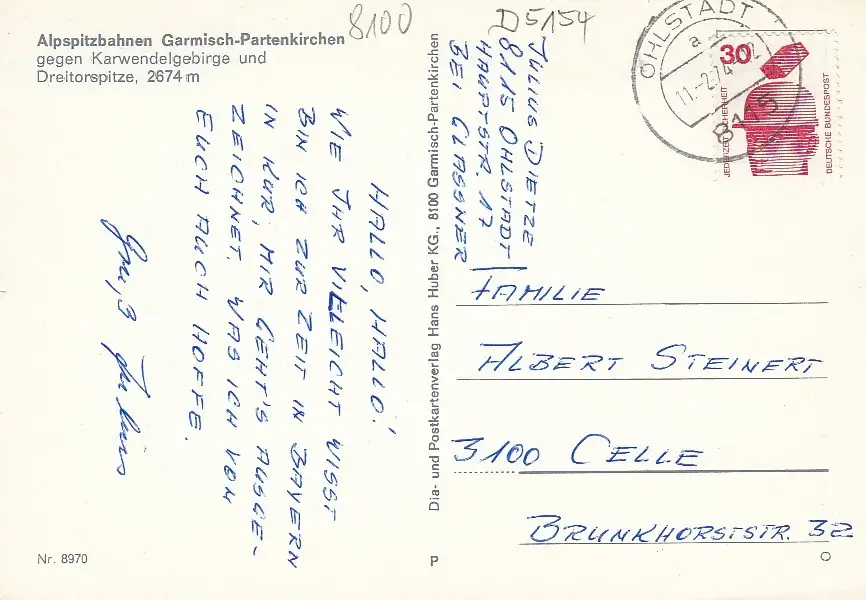 Alpspitzbahnen Garmisch-Partenkirchen
gegen Karwendelgebirge und
Dreitorspitze, 2674 m
8100
D5154
HALLO, HALLO!
WIE IHR VIELEICHT WISST
BIN ICH ZUR ZEIT IN BAYERN
IN KUR, MIR GEHT'S AUSGE-
ZEICHNET. WAS ICH VON
EUCH AUCH HOFFE.
Gruß Julius
Nr. 8970
Dia- und Postkartenverlag Hans Huber KG., 8100 Garmisch-Partenkirchen
P
JULIUS DIETZE
8115 OHLSTADT
HAUPTSTR. 17
BEI GLASSNER
OHLSTADT
a
11.-2.74
8115
30
JEDERZEIT SICHERHEIT
DEUTSCHE BUNDESPOST
FAMILIE
ALBERT STEINERT
3100 CELLE
BRUNKHORSTSTR. 32